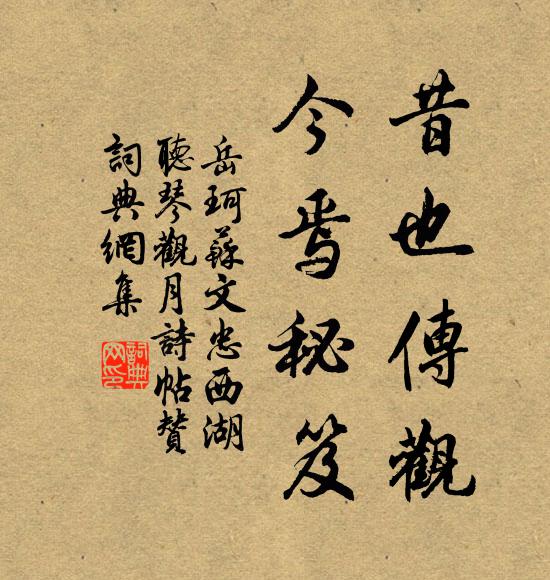 昔也傳觀
今焉秘笈
岳珂蘇文忠西湖
聽琴觀月詩帖贊
詞典網集
詞典
网印